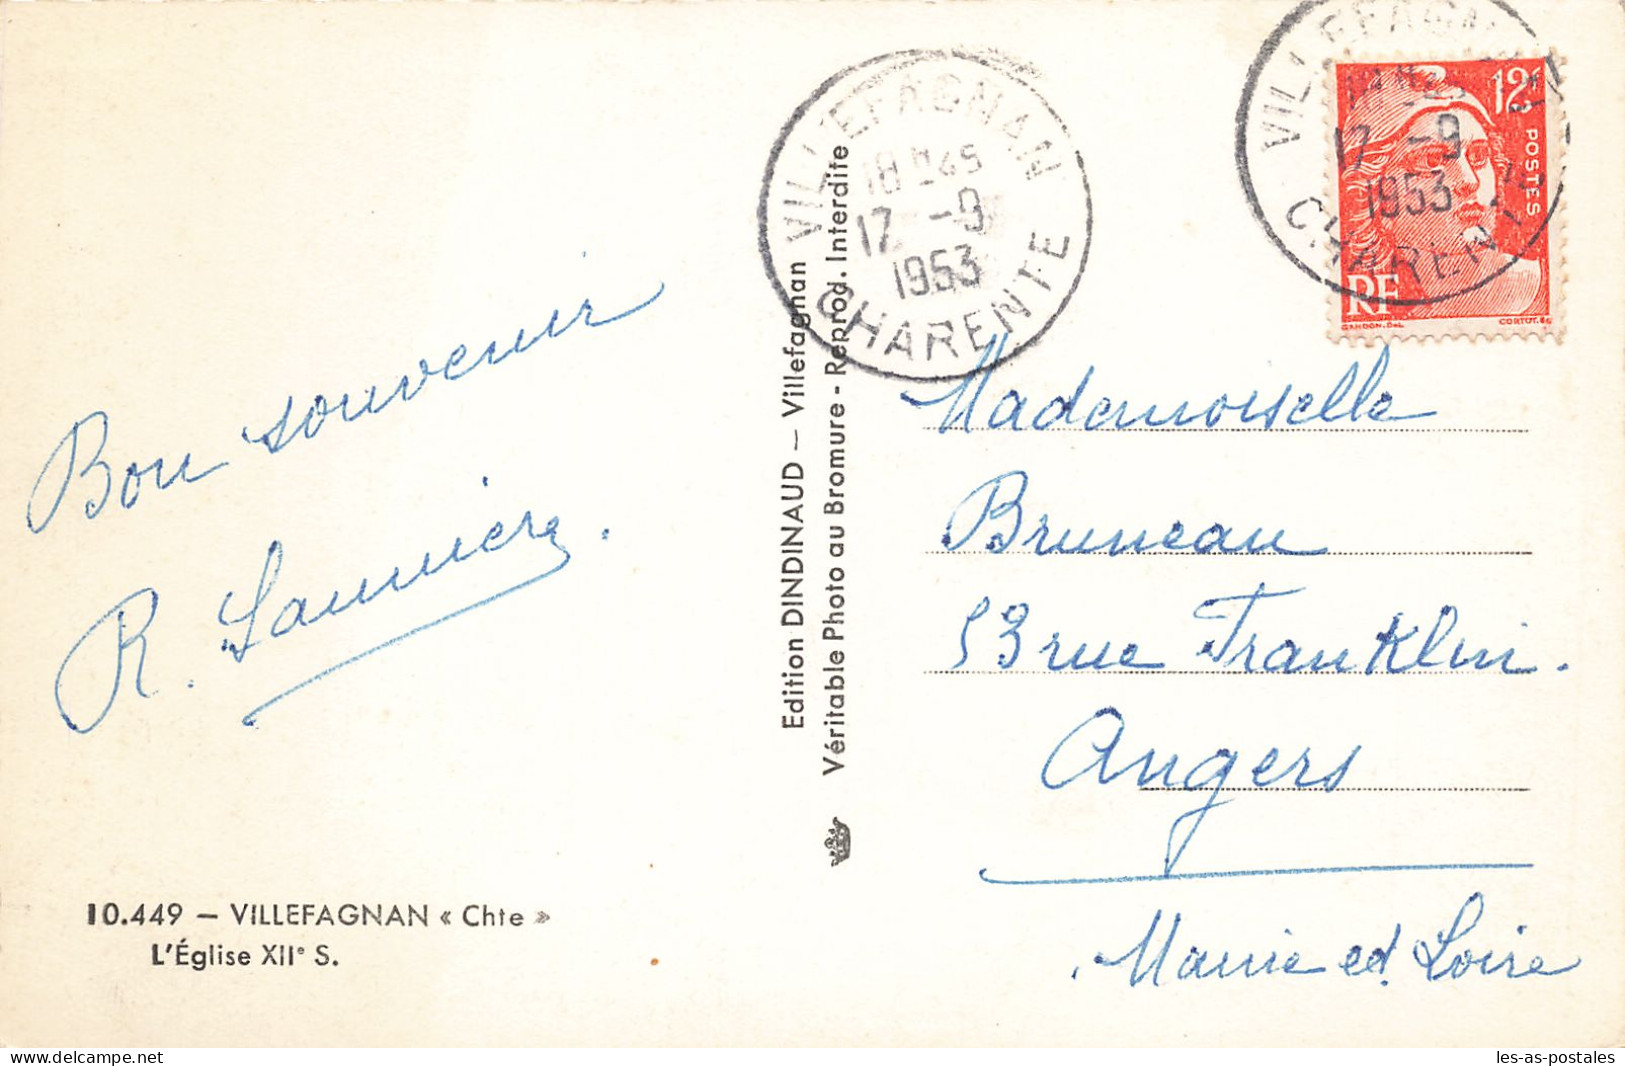 Bon souvenir
R. Launière.
10.449 — VILLEFAGNAN « Chte »
L'Église XIIe S.
Edition DINDINAUD — Villefagnan
Véritable Photo au Bromure - Reprod. Interdite
VILLEFAGNAN
18H45
17 -9
1953
CHARENTE
VILLEFAGNAN
18H45
17 -9
1953
CHARENTE
12F
POSTES
RF
GANDON. DEL.
CORTOT. SC.
Mademoiselle
Bruneau
53 rue Franklin.
Angers
Maine et Loire
delcampe.net
les-as-postales